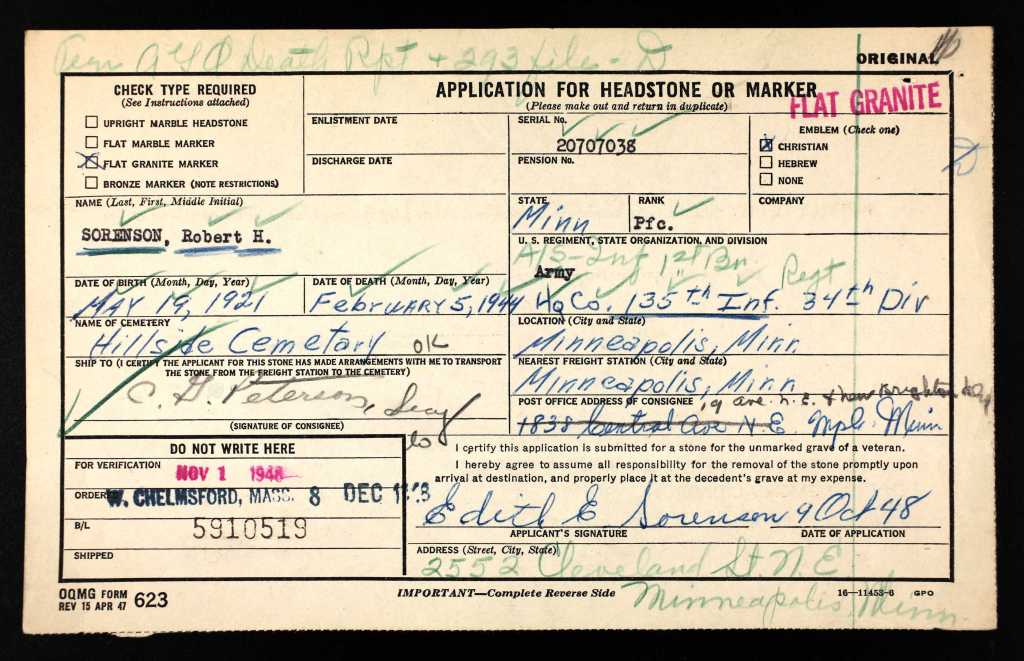 AGO Death Rpt + 293 file - D
ORIGINAL
CHECK TYPE REQUIRED
(See Instructions attached)
UPRIGHT MARBLE HEADSTONE
FLAT MARBLE MARKER
FLAT GRANITE MARKER
BRONZE MARKER (NOTE RESTRICTIONS)
APPLICATION FOR HEADSTONE OR MARKER
(Please make out and return in duplicate)
FLAT GRANITE
ENLISTMENT DATE
DISCHARGE DATE
SERIAL No.
20707038
PENSION No.
EMBLEM (Check one)
X CHRISTIAN
HEBREW
NONE
NAME (Last, First, Middle Initial)
SORENSON, Robert H.
STATE
Minn
RANK
Pfc.
COMPANY
U. S. REGIMENT, STATE ORGANIZATION, AND DIVISION
A/S-Inf 1st Bn
Army
Regt
Hq Co. 135th Inf. 34th Div
DATE OF BIRTH (Month, Day, Year)
MAY 19, 1921
DATE OF DEATH (Month, Day, Year)
February 5, 1944
NAME OF CEMETERY
Hillside Cemetary OK
LOCATION (City and State)
Minneapolis, Minn.
SHIP TO (I CERTIFY THE APPLICANT FOR THIS STONE HAS MADE ARRANGEMENTS WITH ME TO TRANSPORT
THE STONE FROM THE FREIGHT STATION TO THE CEMETERY)
C. G. Peterson, Secy
(SIGNATURE OF CONSIGNEE)
NEAREST FREIGHT STATION (City and State)
Minneapolis, Minn
POST OFFICE ADDRESS OF CONSIGNEE
19 ave. N.E. & New Brighton
1838 Central Ave N.E. Mpls Minn
DO NOT WRITE HERE
FOR VERIFICATION
NOV 1 1948
ORDERED
W. CHELMSFORD, MASS. 8 DEC
B/L
5910519
SHIPPED
I certify this application is submitted for a stone for the unmarked grave of a veteran.
I hereby agree to assume all responsibility for the removal of the stone promptly upon
arrival at destination, and properly place it at the decedent's grave at my expense.
Edith E Sorenson 9 Oct 48
APPLICANT'S SIGNATURE
DATE OF APPLICATION
ADDRESS (Street, City, State)
2552 Cleveland St. N.E.
Minneapolis, Minn.
OQMG FORM
REV 15 APR 47 623
IMPORTANT—Complete Reverse Side
16—11453-6 GPO